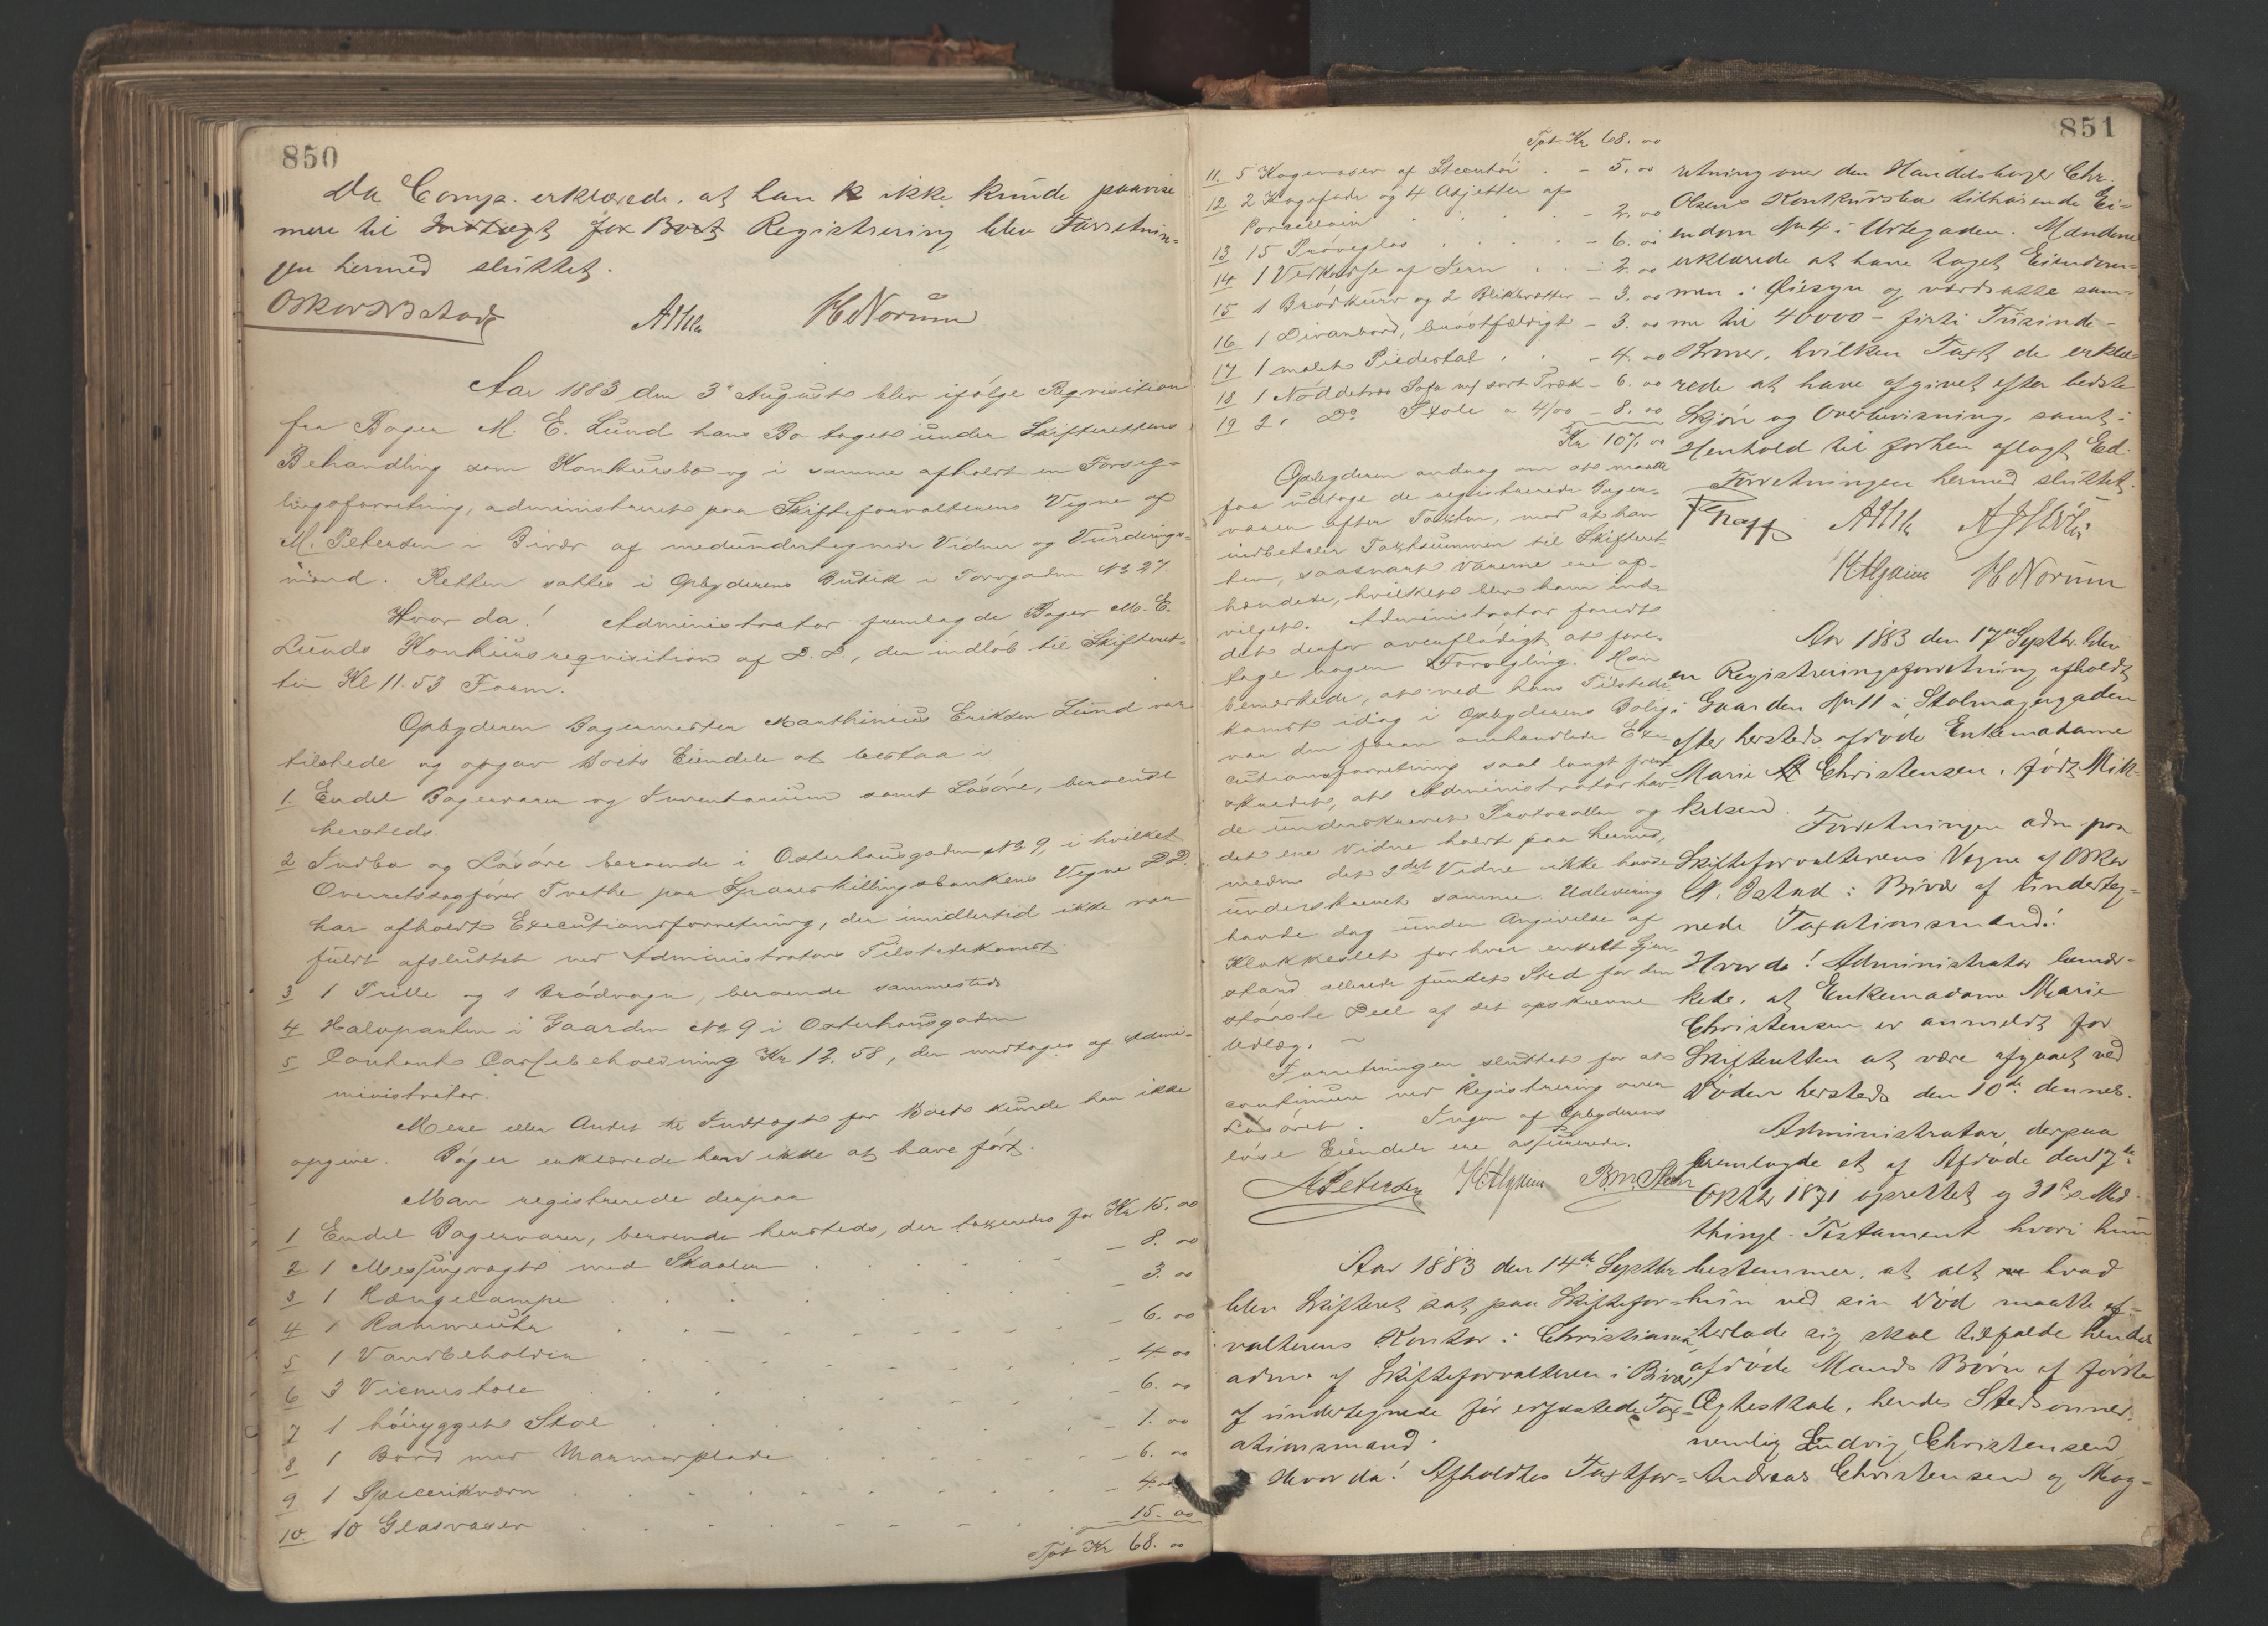 850
Da Comp. erklærede, at han ikke kunde paavise
mere til Indtægt for Boet Registrering blev Forretnin-
gen hermed sluttet.
HNorum
Aar 1883 den 3 August blev ifølge Reqvisition
fra Bager M. E. Lund hans Bo taget under Skifterettens
Behandling som Konkursbo og i samme afholdt en Forseg-
lingsforretning, administreret paa Skifteforvalterens Vegne af
M. Petersen i Bivær af medundertegnede Vidner og Vurderings-
mænd. Retten sattes i Opbyderens Butik i Torvgaden No 27
Hvor da! Administrator fremlagde Bager M. E.
Lunds Konkursreqvisition af D. D., der indløb til Skifteret-
ten Kl 11.53 Form.
Opbyderen Bagermester Marthinius Eriksen Lund var
tilstede og opgav Boets Eiendele at bestaa i
1. Endel Bagervarer og Inventarium samt Løsøre, beroende
hersteds.
2 Indbo og Løsøre beroende i Osterhausgaden No 9, i hvilket
Overretssagfører Trethe paa Spareskillingsbankens Vegne D.D.
har afholdt Executionsforretning, der imidlertid ikke var
fuldt afsluttet ved Administrators Tilstedekomst
3 1 Trille og 1 Brødvogn, beroende sammesteds
4 Halvparten i Gaarden No 9 i Osterhausgaden
5 Contant Cassebeholdning Kr 12.58, der modtages af Admi-
ministrator.
Mere eller Andet til Indtægt for Boet kunde han ikke
opgive. Bøger erklærede han ikke at have ført.
Man registrerede derpaa
1 Endel Bagervarer, beroende hersteds, der taxeredes for Kr 15.00
2 1 Messingvægt med Skaaler - 8.00
3 1 Hængelampe - 3.00
4 1 Rammeuhr - 6.00
5 1 Vandbeholder - 4.00
6 3 Vienerstole - 6.00
7 1 høirygget Stol - 1.00
8 1 Bord med Marmorplade - 6.00
9 1 Specerikværn - 4.00
10. 10 Glasvaser - 15.00
Tpt Kr 68.00
851
Tpt Kr 68.00
11. 5 Kagevaser af Steentøi - 5.00
12 2 Kagefade og 4 Asjetter af
Porcellain - 2.00
13 15 Prøveglas - 6.00
14 1 Vedkasse af Jern - 2.00
15 1 Brødkurv og 2 Blikbøtter - 3.00
16 1 Divanbord, brøstfældigt - 3.00
17 1 malet Piedestal - 4.00
18 1 Nøddetræs Sofa m/ sort Træk - 6.00
19 2 Do Stole a 4/00 - 8.00
Kr 107.00
Opbyderen androg om at maatte
faa udtage de registrerede Bager-
varer efter Taxten, mod at han
indbetaler Taxtsummen til Skifteret-
ten, saasnart Varerne ere af-
hændede, hvilket blev ham ind-
vilget. Administrator fandt
det derfor overflødigt at fore-
tage nogen Forsegling. Han
bemærkede, at ved hans Tilstede-
komst idag i Opbyderens Bolig
var den foran omhandlede Exe-
cutionsforretning saa langt frem-
skredet, at Administrator hav-
de underskrevet Protocollen og
det ene Vidne holdt paa hermed,
medens det 2det Vidne ikke havde
underskrevet samme. Udlevering
havde dog under Angivelse af
Klokkeslet for hver enkelt Gjen-
stand allerede fundet Sted for den
største Deel af det opskrevne
Udlæg. ~
Forretningen sluttet for at
continuere ved Registrering over
Løsøret. Ingen af Opbyderens
løse Eiendele ere assurerede.
MPetersen
Aar 1883 den 14de Septbr
blev Skifteret sat paa Skiftefor-
valterens Kontor i Christiania
adm. af Skifteforvalteren i Bivær
af undertegnede før erfastede Tax-
ationsmænd.
Hvor da! Afholdtes Taxtfor-
retning over den Handelsborger Chr.
Olsens Konkursbo tilhørende Ei-
endom No 4 i Urtegaden. Mændene
erklærede at have taget Eiendom-
men i Øiesyn og værdsatte sam-
me til 40000 - firti Tusinde -
Kroner, hvilken Taxt de erklæ-
rede at have afgivet efter bedste
Skjøn og Overbevisning, samt i
Henhold til forhen aflagt Ed.
Forretningen hermed sluttet.
HNorum
Aar 1883 den 17de Septbr. blev
en Registreringsforretning afholdt
i Gaarden No 11 i Stolmagergaden
efter hersteds afdøde Enkemadame
Marie Christensen, født Mik-
kelsen.
Forretningen adm paa
Skifteforvalterens Vegne af Oskar
N. Ystad i Bivær af underteg-
nede Taxationsmænd!
Hvor da! Administrator bemær-
kede, at Enkemadame Marie
Christensen er anmeldt for
Skifteretten at være afgaaet ved
Døden hersteds den 10de dennes.
Administrator derpaa
fremlagde et af Afdøde den 17de
Oktbr 1871 oprettet og 31te s. Md.
thingl. Testament hvori hun
bestemmer, at alt hvad
hun ved sin Død maatte ef-
terlade sig skal tilfalde hendes
afdøde Mands Børn af første
Ægteskab, hendes Stedsønner,
nemlig Ludvig Christensen
Andreas Christensen og Mag-